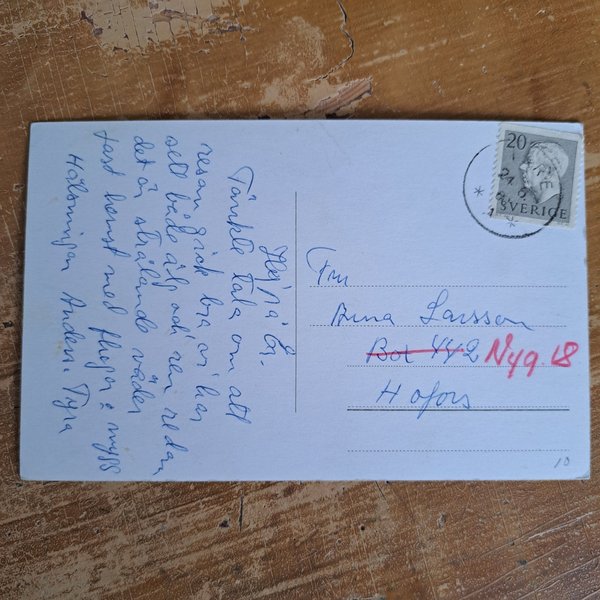 Hej på Er.
Tänkte tala om att
resan gick bra vi har
sett både älg och ren redan
det är strålande väder
fast hemst med flugor o mygg
Hälsningar Anders. Tyra
20
SVERIGE
Fru
Anna Larsson
Box 442 Nyg. 18
Hofors
10